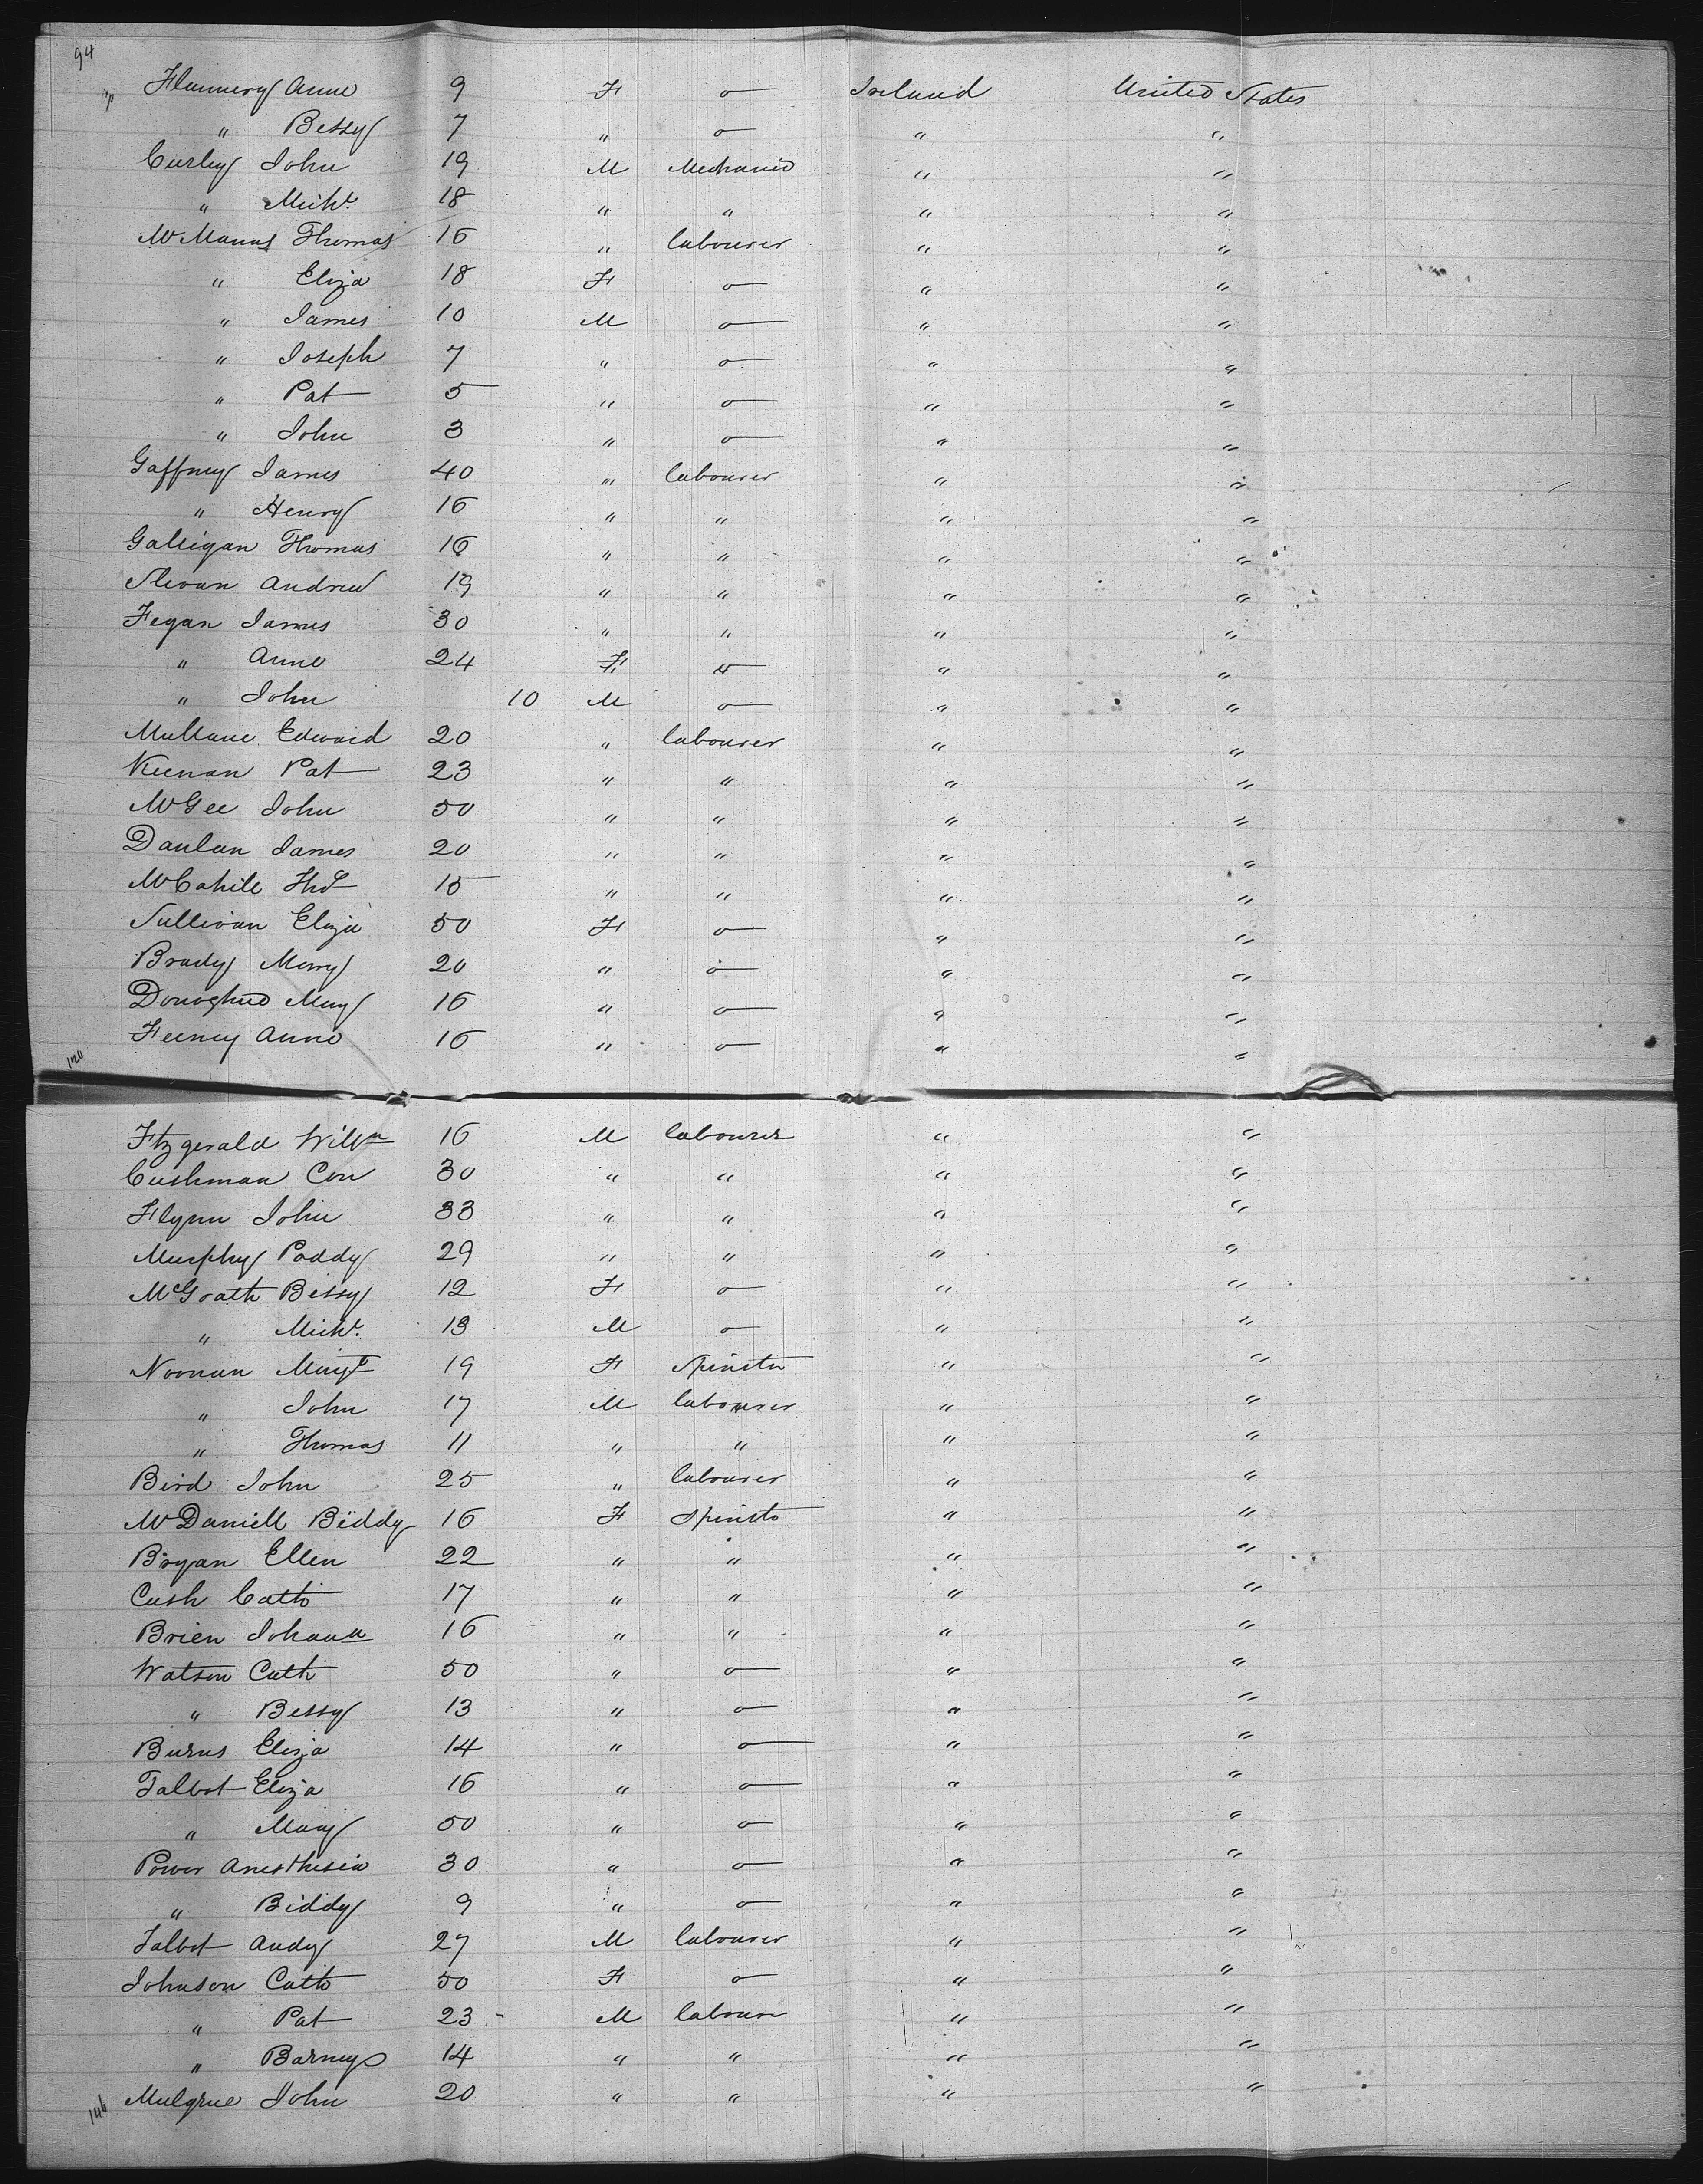 94
Flannery Anne 9 F o Ireland United States
" Bessy 7 " o " "
Curley John 19 M Mechanic " "
" Michl. 18 " " " "
McManus Thomas 16 " labourer " "
" Eliza 18 F o " "
" James 10 M o " "
" Joseph 7 " o " "
" Pat 5 " o " "
" John 3 " o " "
Gaffney James 40 " labourer " "
" Henry 16 " " " "
Galligan Thomas 16 " " " "
Slevan Andrew 19 " " " "
Fegan James 30 " " " "
" Anne 24 F o " "
" John 10 M o " "
Mullane Edward 20 " labourer " "
Keenan Pat 23 " " " "
McGee John 50 " " " "
Danlan James 20 " " " "
McCahile Thos 15 " " " "
Sullivan Eliza 50 F o " "
Brady Mary 20 " o " "
Donoghue Mary 16 " o " "
Feeney Anne 16 " o " "
120
Ftzgerald Willm 16 M labourer " "
Cushman Con 30 " " " "
Flynn John 33 " " " "
Murphy Paddy 29 " " " "
McGrath Bessy 12 F o " "
" Michl. 13 M o " "
Noonan Margt 19 F Spinster " "
" John 17 M labourer " "
" Thomas 11 " " " "
Bird John 25 " labourer " "
McDaniell Biddy 16 F Spinster " "
Bryan Ellen 22 " " " "
Cush Cath 17 " " " "
Brien Johanna 16 " " " "
Watson Cath 50 " o " "
" Bessy 13 " o " "
Burns Eliza 14 " o " "
Talbot Eliza 16 " o " "
" Mary 50 " o " "
Power Anesthesia 30 " o " "
" Biddy 9 " o " "
Talbot Andy 27 M labourer " "
Johnson Cath 50 F o " "
" Pat 23 M labourer " "
" Barney 14 " " " "
146 Mulgrue John 20 " " " "